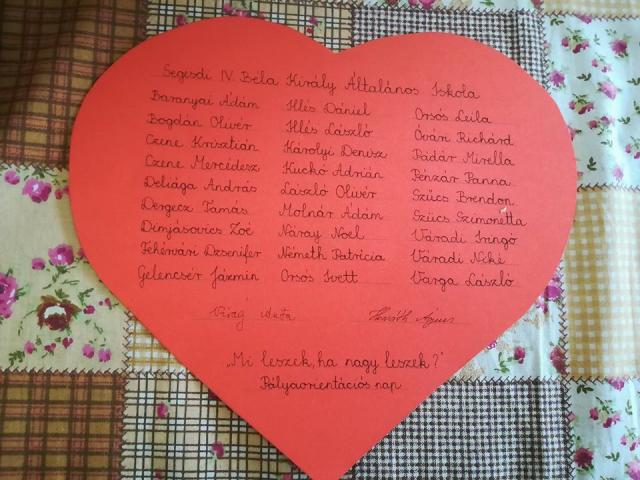 Segesdi IV. Béla Király Általános Iskola
Baranyai Ádám
Bogdán Olivér
Czene Krisztián
Czene Mercédesz
Deliága András
Dergecz Tamás
Dimjásovics Zoé
Fehérvári Dzsenifer
Gelencsér Jázmin
Illés Dániel
Illés László
Károlyi Denisz
Kuckó Adrián
László Olivér
Molnár Ádám
Náray Noel
Németh Patrícia
Orsós Ivett
Orsós Leila
Óvári Richárd
Pádár Mirella
Pénzár Panna
Szűcs Brendon
Szűcs Szimonetta
Váradi Iringó
Váradi Niké
Varga László
Virág
Horváth Ágnes
„Mi leszek, ha nagy leszek?"
Pályaorientációs nap